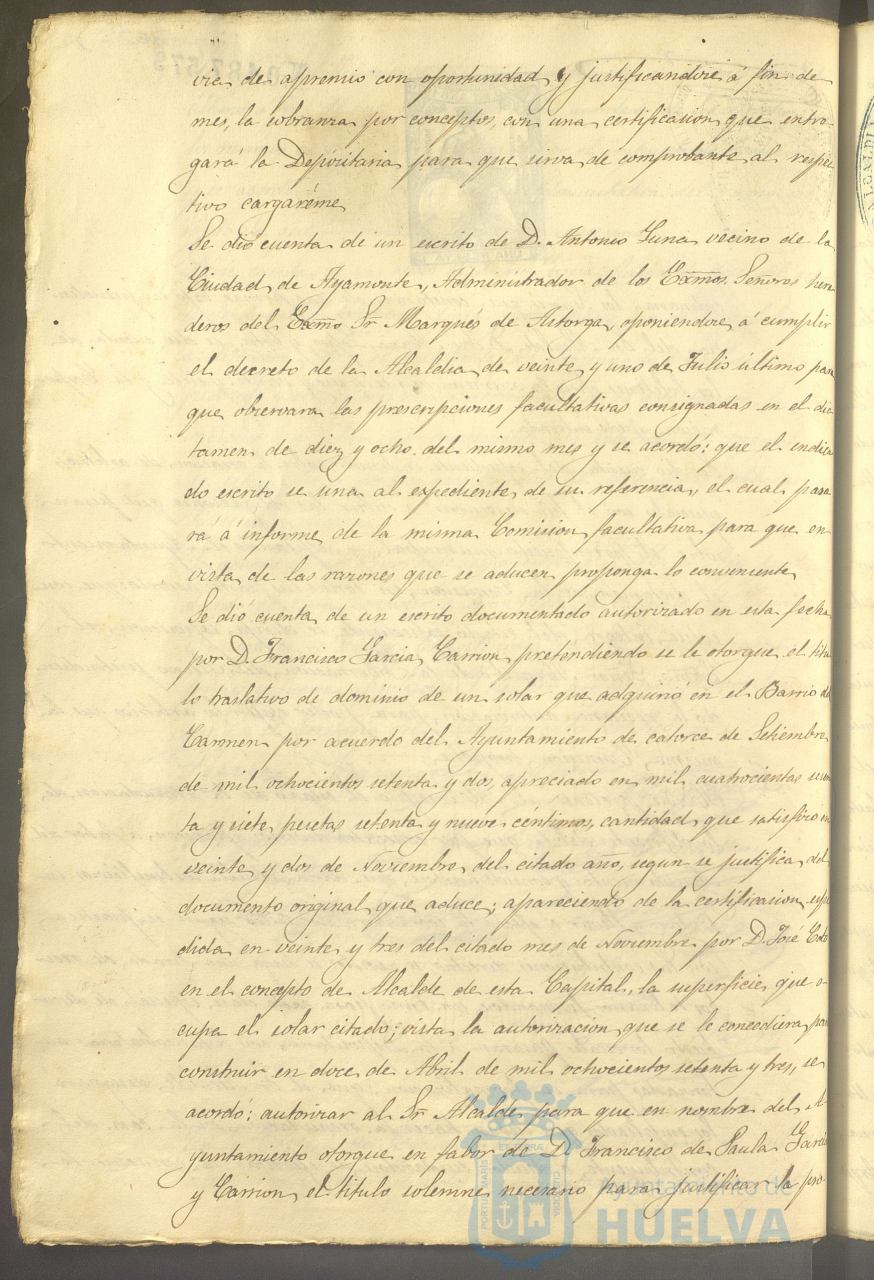 via de apremio con oportunidad y justificandose á fin de
mes, la cobranza por conceptos, con una certificacion que entre-
gará la Depositaria para que sirva de comprobante al respec-
tivo cargaréme
Se dio cuenta de un escrito de D. Antonio Luna vecino de la
Ciudad de Ayamonte, Administrador de los Exmos. Señores here
deros del Exmo Sr. Marqués de Astorga, oponiendose á cumplir
el decreto de la Alcaldia de veinte y uno de Julio último para
que observara las prescripciones facultativas consignadas en el dic
tamen de diez y ocho del mismo mes y se acordó: que el indica
do escrito se una al expediente de su referencia, el cual pasa
rá á informe de la misma Comision facultativa para que en
vista de las razones que se aducen proponga lo conveniente
Se dió cuenta de un escrito documentado autorizado en esta fecha
por D. Francisco Garcia Carrion pretendiendo se le otorgue el titu
lo traslativo de dominio de un solar que adquirió en el Barrio del
Carmen por acuerdo del Ayuntamiento de catorce de Setiembre
de mil ochocientos setenta y dos, apreciado en mil cuatrocientas sesen
ta y siete pesetas setenta y nueve céntimos, cantidad que satisfizo en
veinte y dos de Noviembre del citado año, segun se justifica del
documento original que aduce; apareciendo de la certificacion espe
dida en veinte y tres del citado mes de Noviembre por D. José Coto
en el concepto de Alcalde de esta Capital, la superficie que o-
cupa el solar citado; vista la autorizacion que se le concediera para
construir en doce de Abril de mil ochocientos setenta y tres, se
acordó: autorizar al Sr. Alcalde para que en nombre del A-
yuntamiento otorgue en fabor de D. Francisco de Paula Garcia
y Carrion el titulo solemne necesario para justificar la pro-
Ayuntamiento de
HUELVA